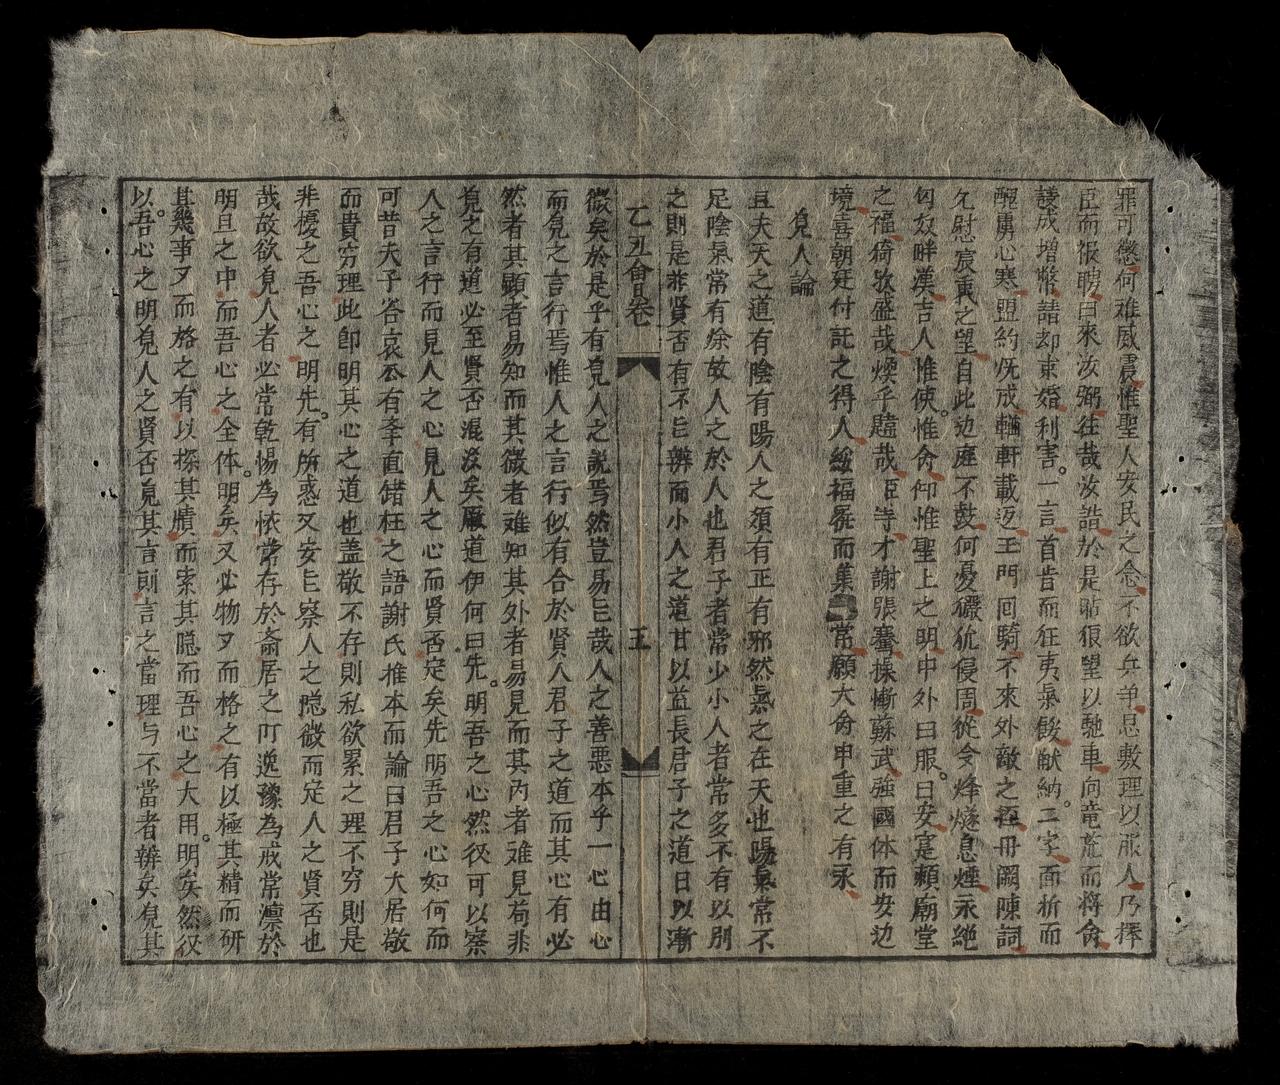 罪可懲何难威震惟聖人安民之念不欲兵革思敷理以服人乃擇
臣而報聘曰來汝弼往哉汝諧於是貼狠望以馳車向竜荒而將命
議成增幣詰却求婚利害一言首肯而狂夷氣餒献納二字面折而
醒虜心寒盟約旣成輶軒載迈玉門回騎不來外敵之礼冊闕陳詞
允慰宸衷之望自此边庭不鼓何憂玁狁侵周從今烽燧息煙永絶
匈奴畔漢吉人惟使惟命仰惟聖上之明中外曰服曰安寔頼廟堂
之福猗欤盛哉煥乎韙哉臣等才謝張騫操慚蘇武強國体而安边
境喜朝廷付託之得人綏福履而集常願大命申重之有永
覓人論
且夫天之道有陰有陽人之類有正有邪然氣之在天也陽氣常不
足陰氣常有余故人之於人也君子者常少小人者常多不有以別
之則是非賢否有不㠯辨而小人之道甘以益長君子之道日以漸
乙丑會卷
五
微矣於是乎有覓人之説焉然豈易㠯哉人之善惡本乎一心由心
而覓之言行焉惟人之言行似有合於賢人君子之道而其心有必
然者其顯者易知而其微者难知其外者易見而其內者难見苟非
覓之有道必至賢否混淆矣厥道伊何曰先明吾之心然後可以察
人之言行而見人之心見人之心而賢否定矣先明吾之心如何而
可昔夫子答哀公有举直錯枉之語謝氏推本而論曰君子大居敬
而貴穷理此即明其心之道也盖敬不存則私欲累之理不穷則是
非擾之吾心之明先有所惑又安㠯察人之隐微而定人之賢否也
哉故欲覓人者必常乾惕為怀常存於斋居之叮逸豫為戒常凛於
明旦之中而吾心之全体明矣又必物又而格之有以極其精而研
其幾事又而格之有以探其賾而索其隐而吾心之大用明矣然後
以吾心之明覓人之賢否覓其言則言之當理与不當者辨矣覓其